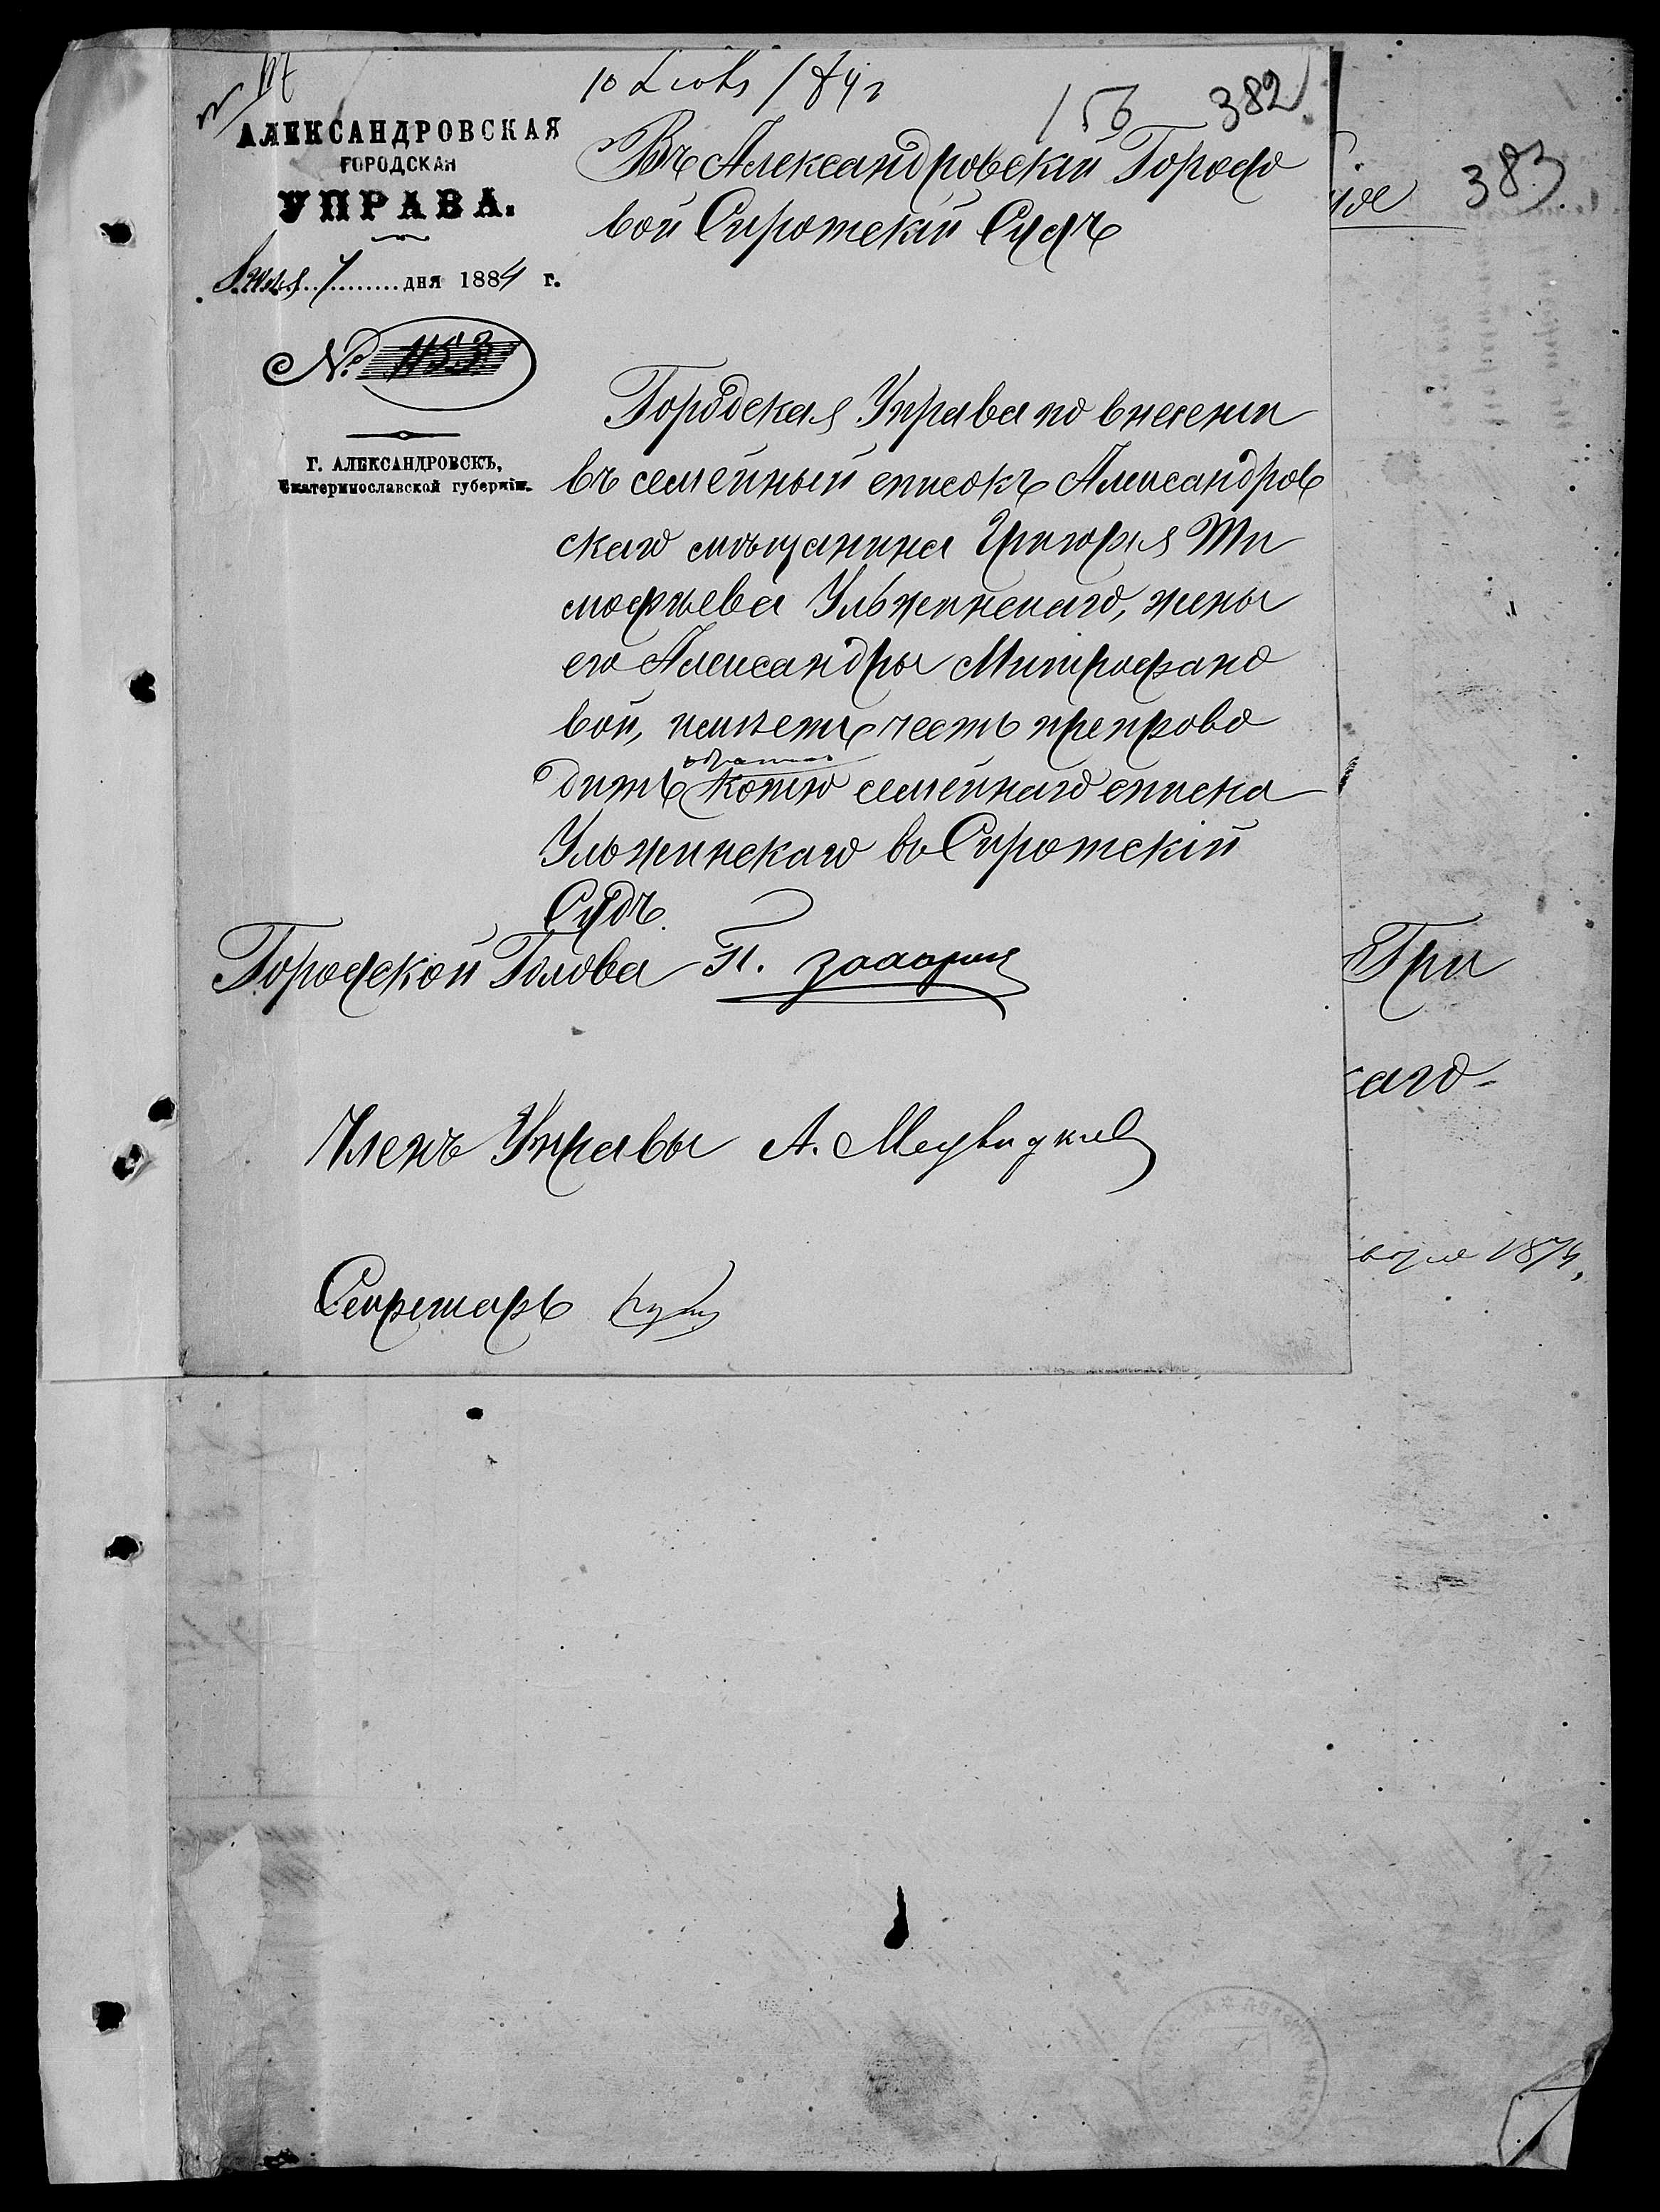 10 Іюля 1884 г
156 382
383.
АЛЕКСАНДРОВСКАЯ
ГОРОДСКАЯ
УПРАВА.
Іюля 7 дня 1884 г.
№ 1153
Г. АЛЕКСАНДРОВСКЪ,
Екатеринославской губерніи.
Въ Александровскій Городо
вой Сиротскій Судъ
Городская Управа по внесеніи
въ семейный списокъ Александров
скаго мѣщанина Григорія Ти
мофѣева Ульжинскаго, жены
его Александры Митрофано
вой, имѣетъ честь препрово
обратно
дить копію семейнаго списка
Ульжинскаго въ Сиротскій
Судъ.
Городской Голова П.
Членъ Управы А.
Секретарь
Гри
каго
1874.